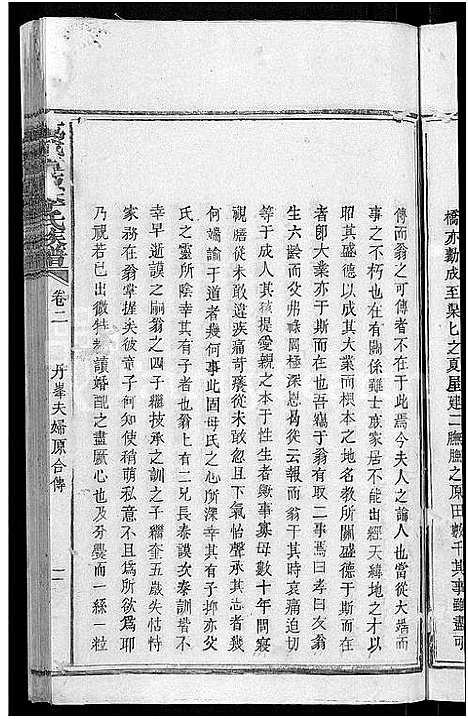 橋亦勸成至梁匕之夏屋建二膴膴之原田數千其事雖盡可
傳而翁之可傳者不在于此焉今夫人之論人也當從大端而
事之不朽也在有關係雖士族家居不能出經天緯地之才以
昭其盛德以成其大業而根本之地名教所關盛德于斯而在
者卽大業亦于斯而在也吾觀于翁有取二事焉曰孝曰友翁
生六齡而父卽祿岡極深恩曷從云報而翁于其時哀痛迫切
等于成人其孩提愛親之本于性生者歟事寡母數十年問寢
視膳從未敢違疾痛苛癢從未敢且下氣怡聲承其志者幾
何端諭于道者幾何事此固母氏之心所深幸其有子抑亦父
氏之靈所陰幸其有子者也翁上有二兄長泰謨次泰訓皆不
幸早逝謨之嗣翁之四子繼技承之訓之子繼奎五歲失怙恃
家務在翁掌握矣彼童子何知使稍萌私意不且爲所欲爲耶
乃視若已出微特教讀婚配之盡厥心也及分爨而一絲一粒
族譜
卷二
丹峯夫婦原合傳
一